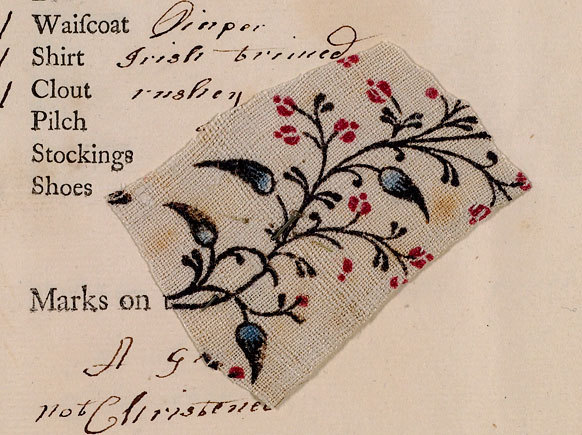 Waiſcoat Diaper
Shirt Irish trimed
Clout rushey
Pilch
Stockings
Shoes
Marks on
A G
not Christened